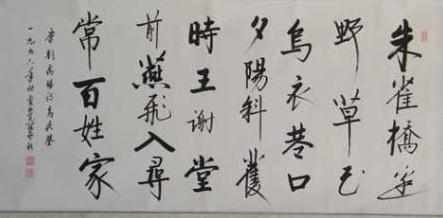 朱雀橋邊
野草花
烏衣巷口
夕陽斜舊
時王謝堂
前燕飛入尋
常百姓家
唐劉禹錫詩烏衣巷
一九九八年